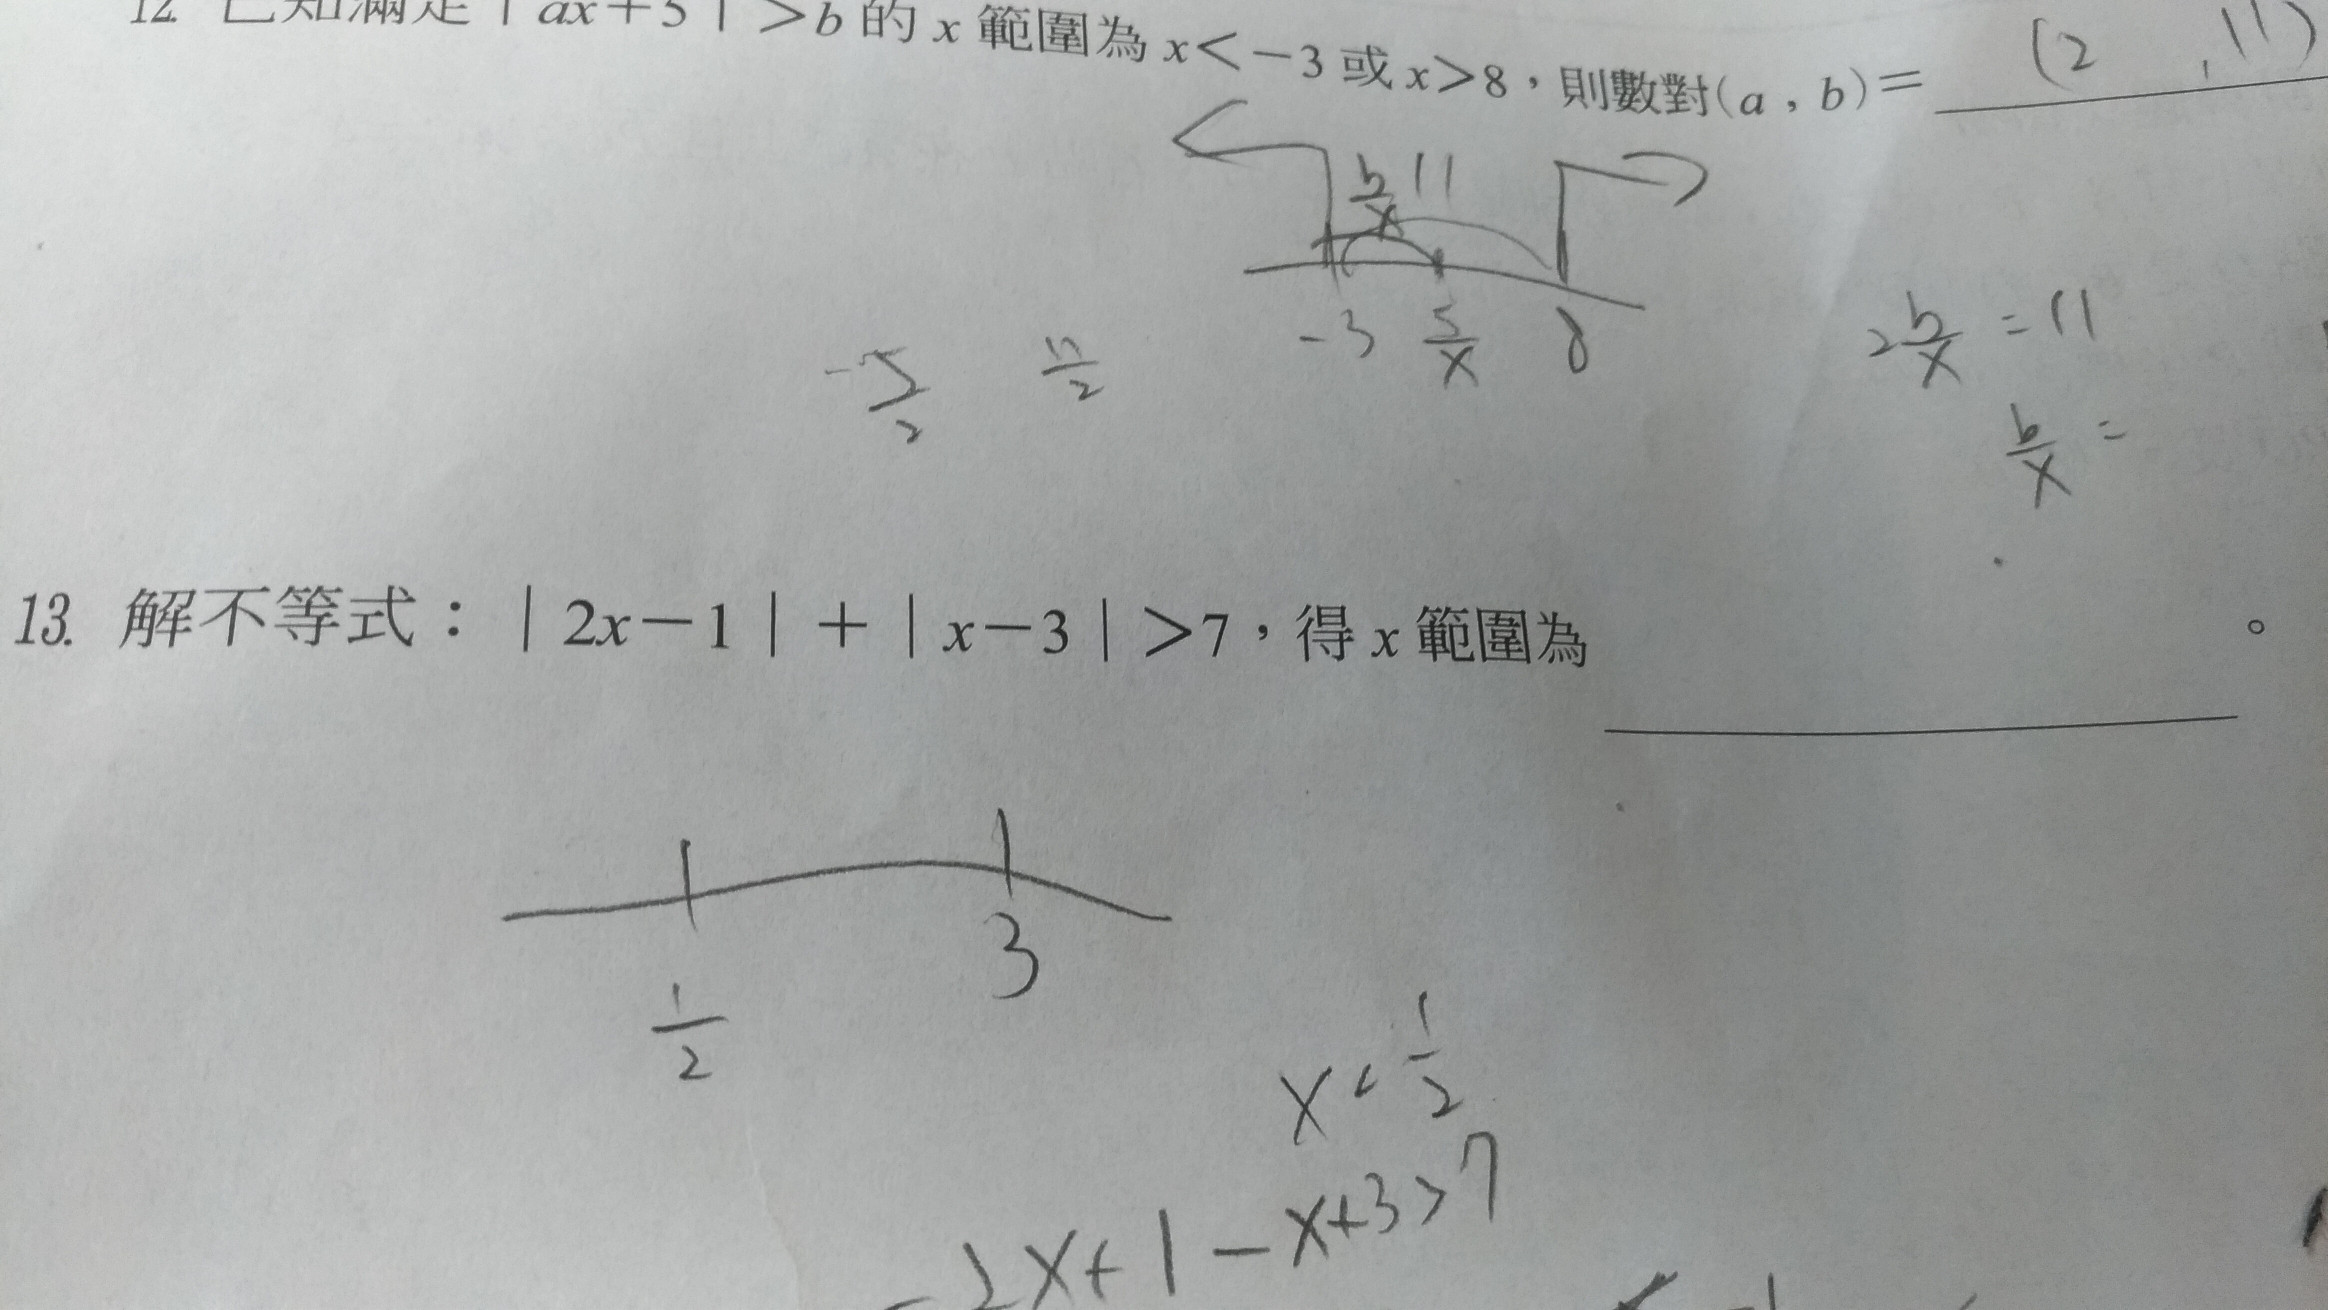 12. 已知滿足 | ax+5 | >b 的 x 範圍為 x<-3 或 x>8,則數對(a , b)= (2 , 11)
b/x 11
-3 5/x 8
2 b/x = 11
-5/2 11/2
b/x =
13. 解不等式:| 2x-1 | + | x-3 | >7,得 x 範圍為 。
1/2 3
x < 1/2
-2x+1-x+3>7